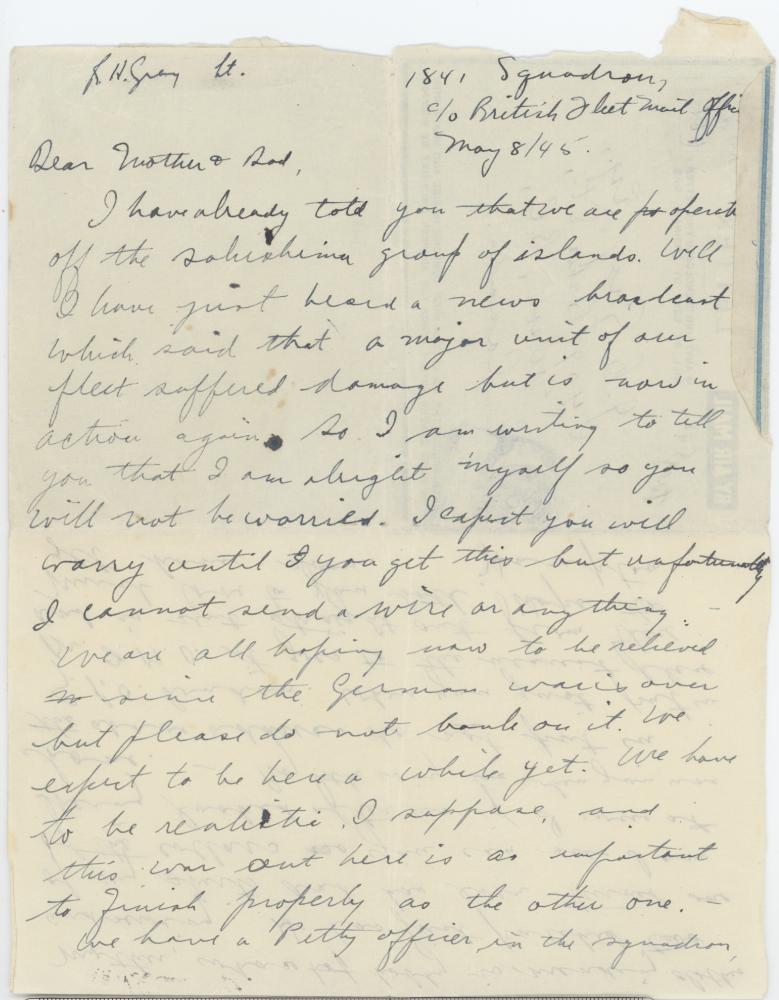 R.H. Gray Lt.
1841 Squadron,
c/o British Fleet Mail Offi
May 8/45.
Dear Mother & Dad,
I have already told you that we are operati
off the sakishima group of islands. Well
I have just heard a news broadcast
which said that a major unit of our
fleet suffered damage but is now in
action again. So I am writing to tell
you that I am alright myself so you
will not be worried. I expect you will
worry until you get this but unfortunately
I cannot send a wire or anything. -
We are all hoping now to be relieved
since the German war is over
but please do not bank on it. We
expect to be here a while yet. We have
to be realistic, I suppose, and
this war out here is as important
to finish properly as the other one. -
We have a Petty officer in the squadron,
BY AIR MAIL